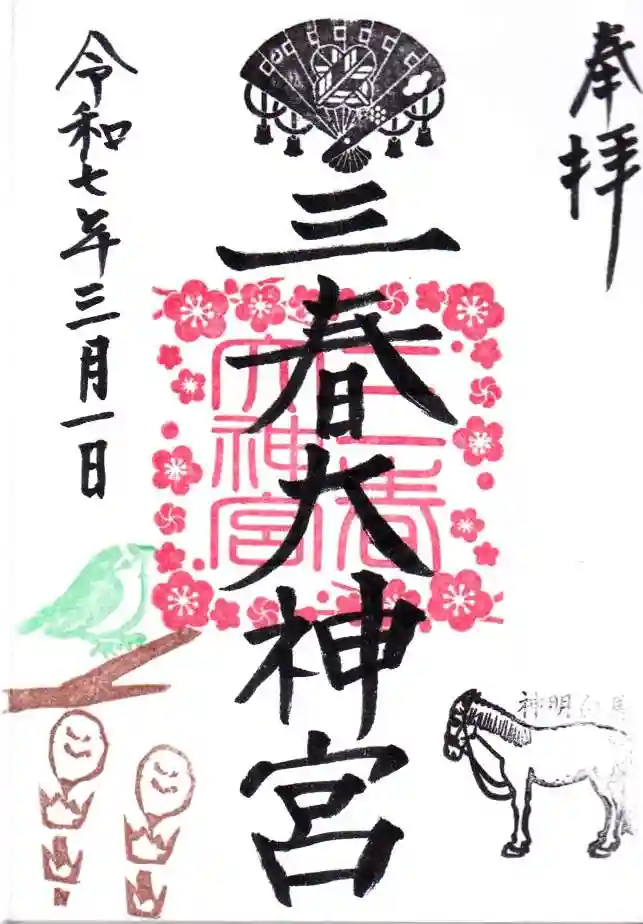 奉拝
三春大神宮
三春
大神宮
神明白馬
令和七年三月一日